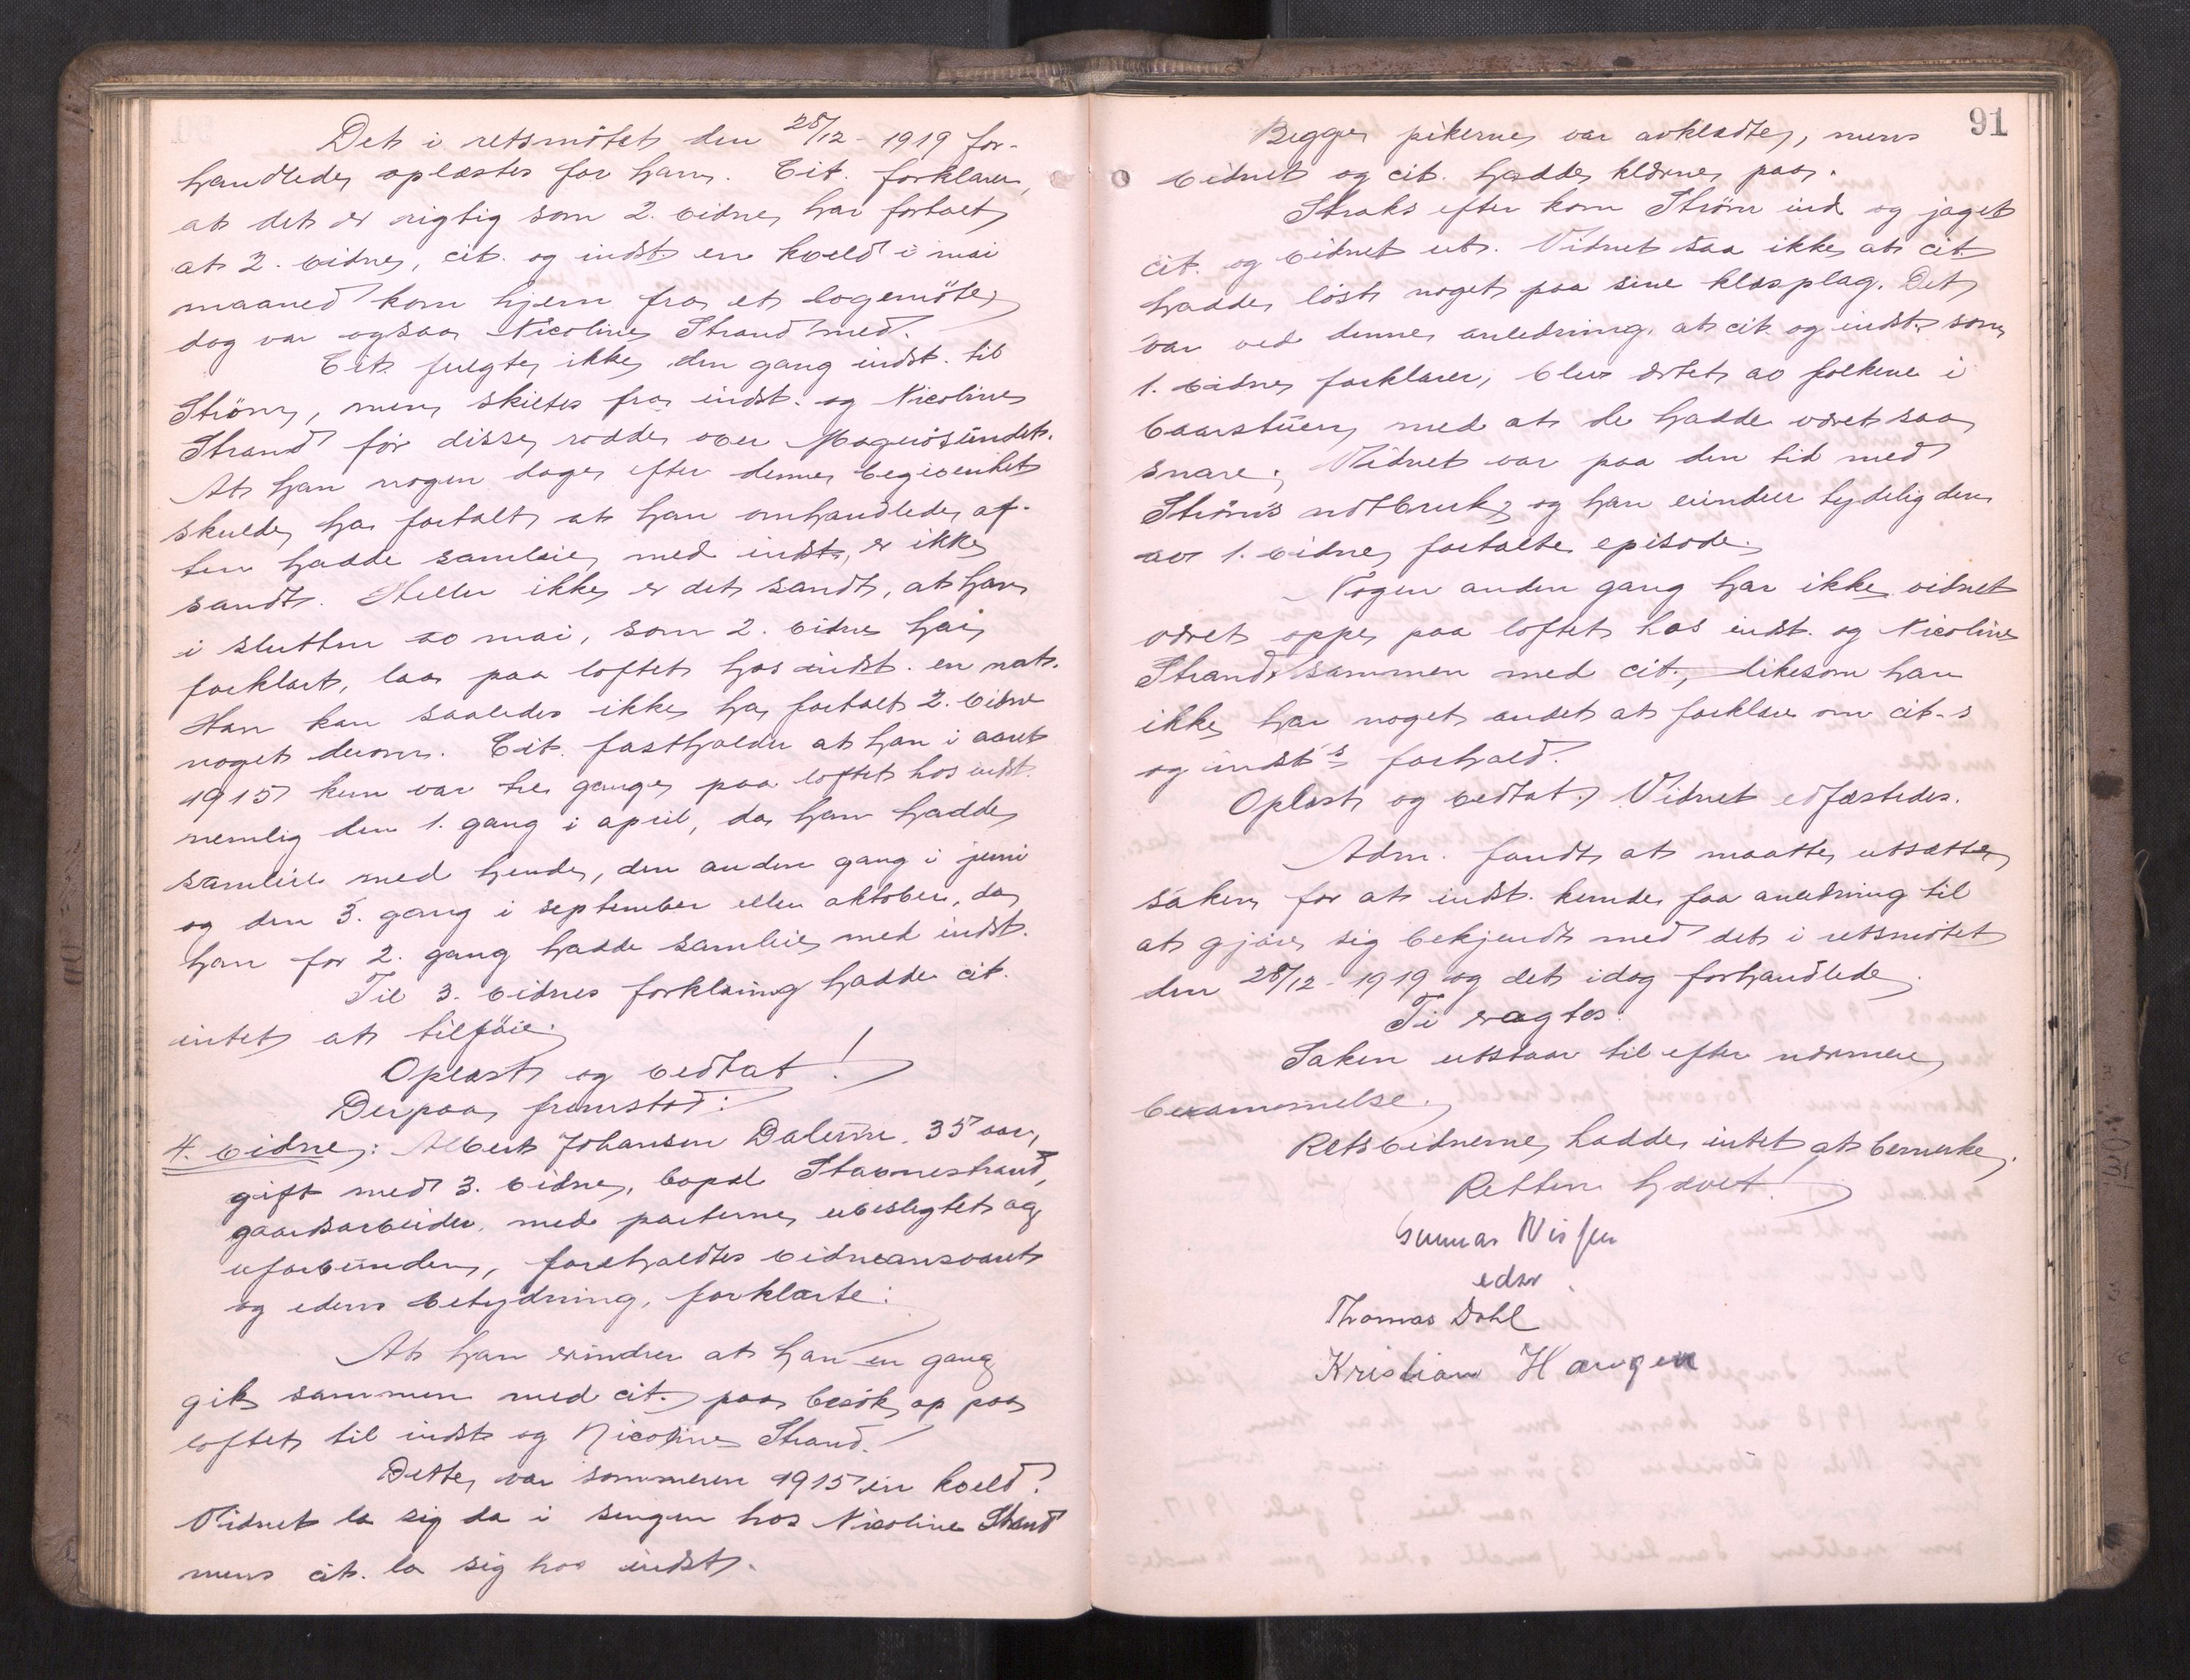 Det i retsmötet den 28/12 - 1919 for-
handlede oplæstes for ham. Cit. forklarer,
at det er rigtig som 2. vidne har fortalt,
at 2. vidne, cit. og indst. en kveld i mai
maaned kom hjem fra et logemöte,
dog var ogsaa Nicoline Strand med.
Cit. fulgte ikke den gang indst. til
Ström, men skiltes fra indst. og Nicoline
Strand før disse rodde over Magerösundet.
At han nogen dage efter denne begivenhet
skulde ha fortalt at han omhandlede af-
ten hadde samleie med indst. er ikke
sandt. Heller ikke er det sandt, at han
i slutten av mai, som 2. vidne har
forklart, laa paa loftet hos indst. en nat.
Han kan saaledes ikke ha fortalt 2. vidne
noget derom. Cit. fastholder at han i aaret
1915 kun var tre gange paa loftet hos indst.
nemlig den 1. gang i april, da han hadde
samleie med hende, den anden gang i juni
og den 3. gang i september eller oktober, da
han for 2. gang hadde samleie med indst.
Til 3. vidnes forklaring hadde cit.
intet at tilföie.
Oplæst og vedtat!
Derpaa fremstod:
4. vidne: Albert Johansen Dalenn, 35 aar,
gift med 3. vidne, bopæl Stavnestrand,
gaardsarbeider, med parterne ubeslegtet og
uforbunden, foreholdtes vidneansvaret
og edens betydning, forklarte:
At han erindrer at han en gang
gik sammen med cit. paa besök op paa
loftet til indst og Nicoline Strand.
Dette var sommeren 1915 en kveld.
Vidnet la sig da i sengen hos Nicoline Strand
mens cit. la sig hos indst.
91
Begge pikerne var avklædte, mens
vidnet og cit. hadde klærne paa.
Straks efter kom Ström ind og jaget
cit. og vidnet ut. Vidnet saa ikke at cit.
hadde löst noget paa sine klæsplag. Det
var ved denne anledning, at cit. og indst. som
1. vidne forklarer, blev ertet av folkene i
baarstuen, med at de hadde været saa
snare. Vidnet var paa den tid med
Ström's notbruk, og han erindrer tydelig den
av 1. vidne fortalte episode.
Nogen anden gang har ikke vidnet
været oppe paa loftet hos indst. og Nicoline
Strand sammen med cit., likesom han
ikke har noget andet at forklare om cit.s
og indst's forhold.
Oplæst og vedtat. Vidnet edfæstedes.
Adm. fandt at maatte utsætte
saken for at indst. kunde faa anledning til
at gjöre sig bekjendt med det i retsmötet
den 28/12 - 1919 og det idag forhandlede.
Ti vagtes:
Saken utstaar til efter nærmere
berammelse.
Retsvidnerne hadde intet at bemerke.
Retten hævet!
Gunnar Nissen
edsv.
Thomas Dahl
Kristian Haugen